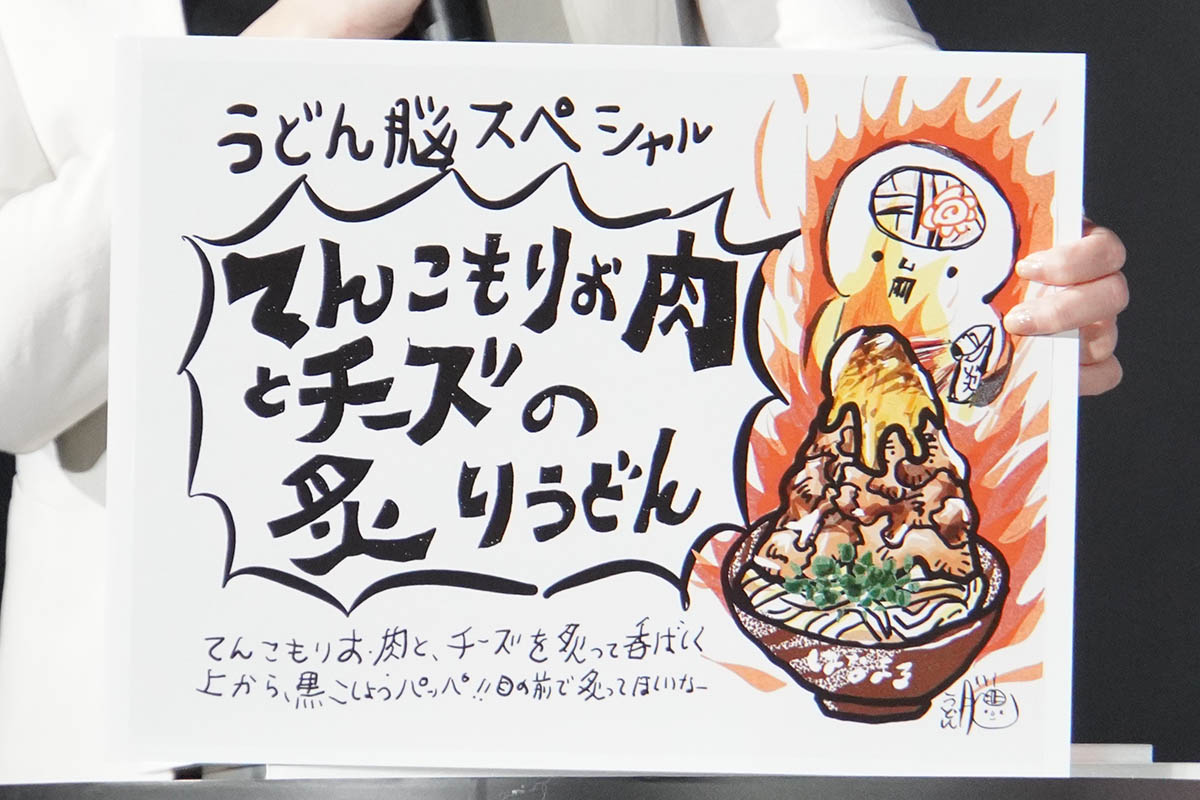 うどん脳スペシャル
てんこもりお肉
とチーズの
炙りうどん
てんこもりお肉と、チーズを炙って香ばしく
上から、黒こしょうパッパ!!目の前で炙ってほしいなー
はなまる
うどん脳